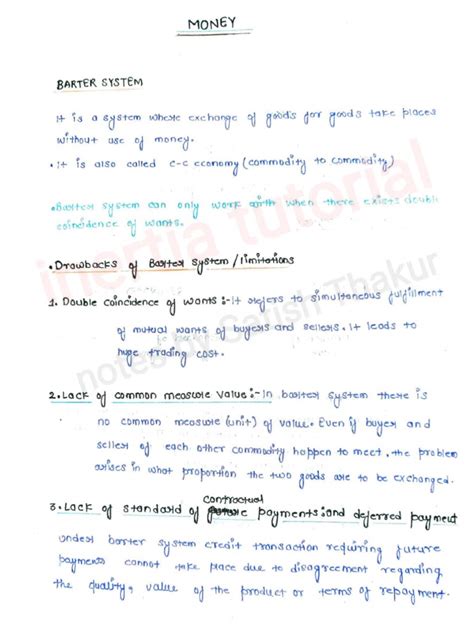 MONEY
BARTER SYSTEM
It is a system where exchange of goods for goods take places
without use of money.
• It is also called c-c economy (commodity to commodity)
• Barter system can only work when there exists double
coincidence of wants.
• Drawbacks of Barter system / limitations
1. Double coincidence of wants :- It refers to simultaneous fulfillment
of mutual wants of buyers and sellers. It leads to
huge trading cost.
2. Lack of common measure value :- In barter system there is
no common measure (unit) of value. Even if buyer and
seller of each other commodity happen to meet, the problem
arises in what proportion the two goods are to be exchanged.
contractual
3. Lack of standard of future payments: and deferred payment
under barter system credit transaction requiring future
payments cannot take place due to disagreement regarding
the quality, value of the product or terms of repayment.
inertia tutorial
notes by Satish Thakur